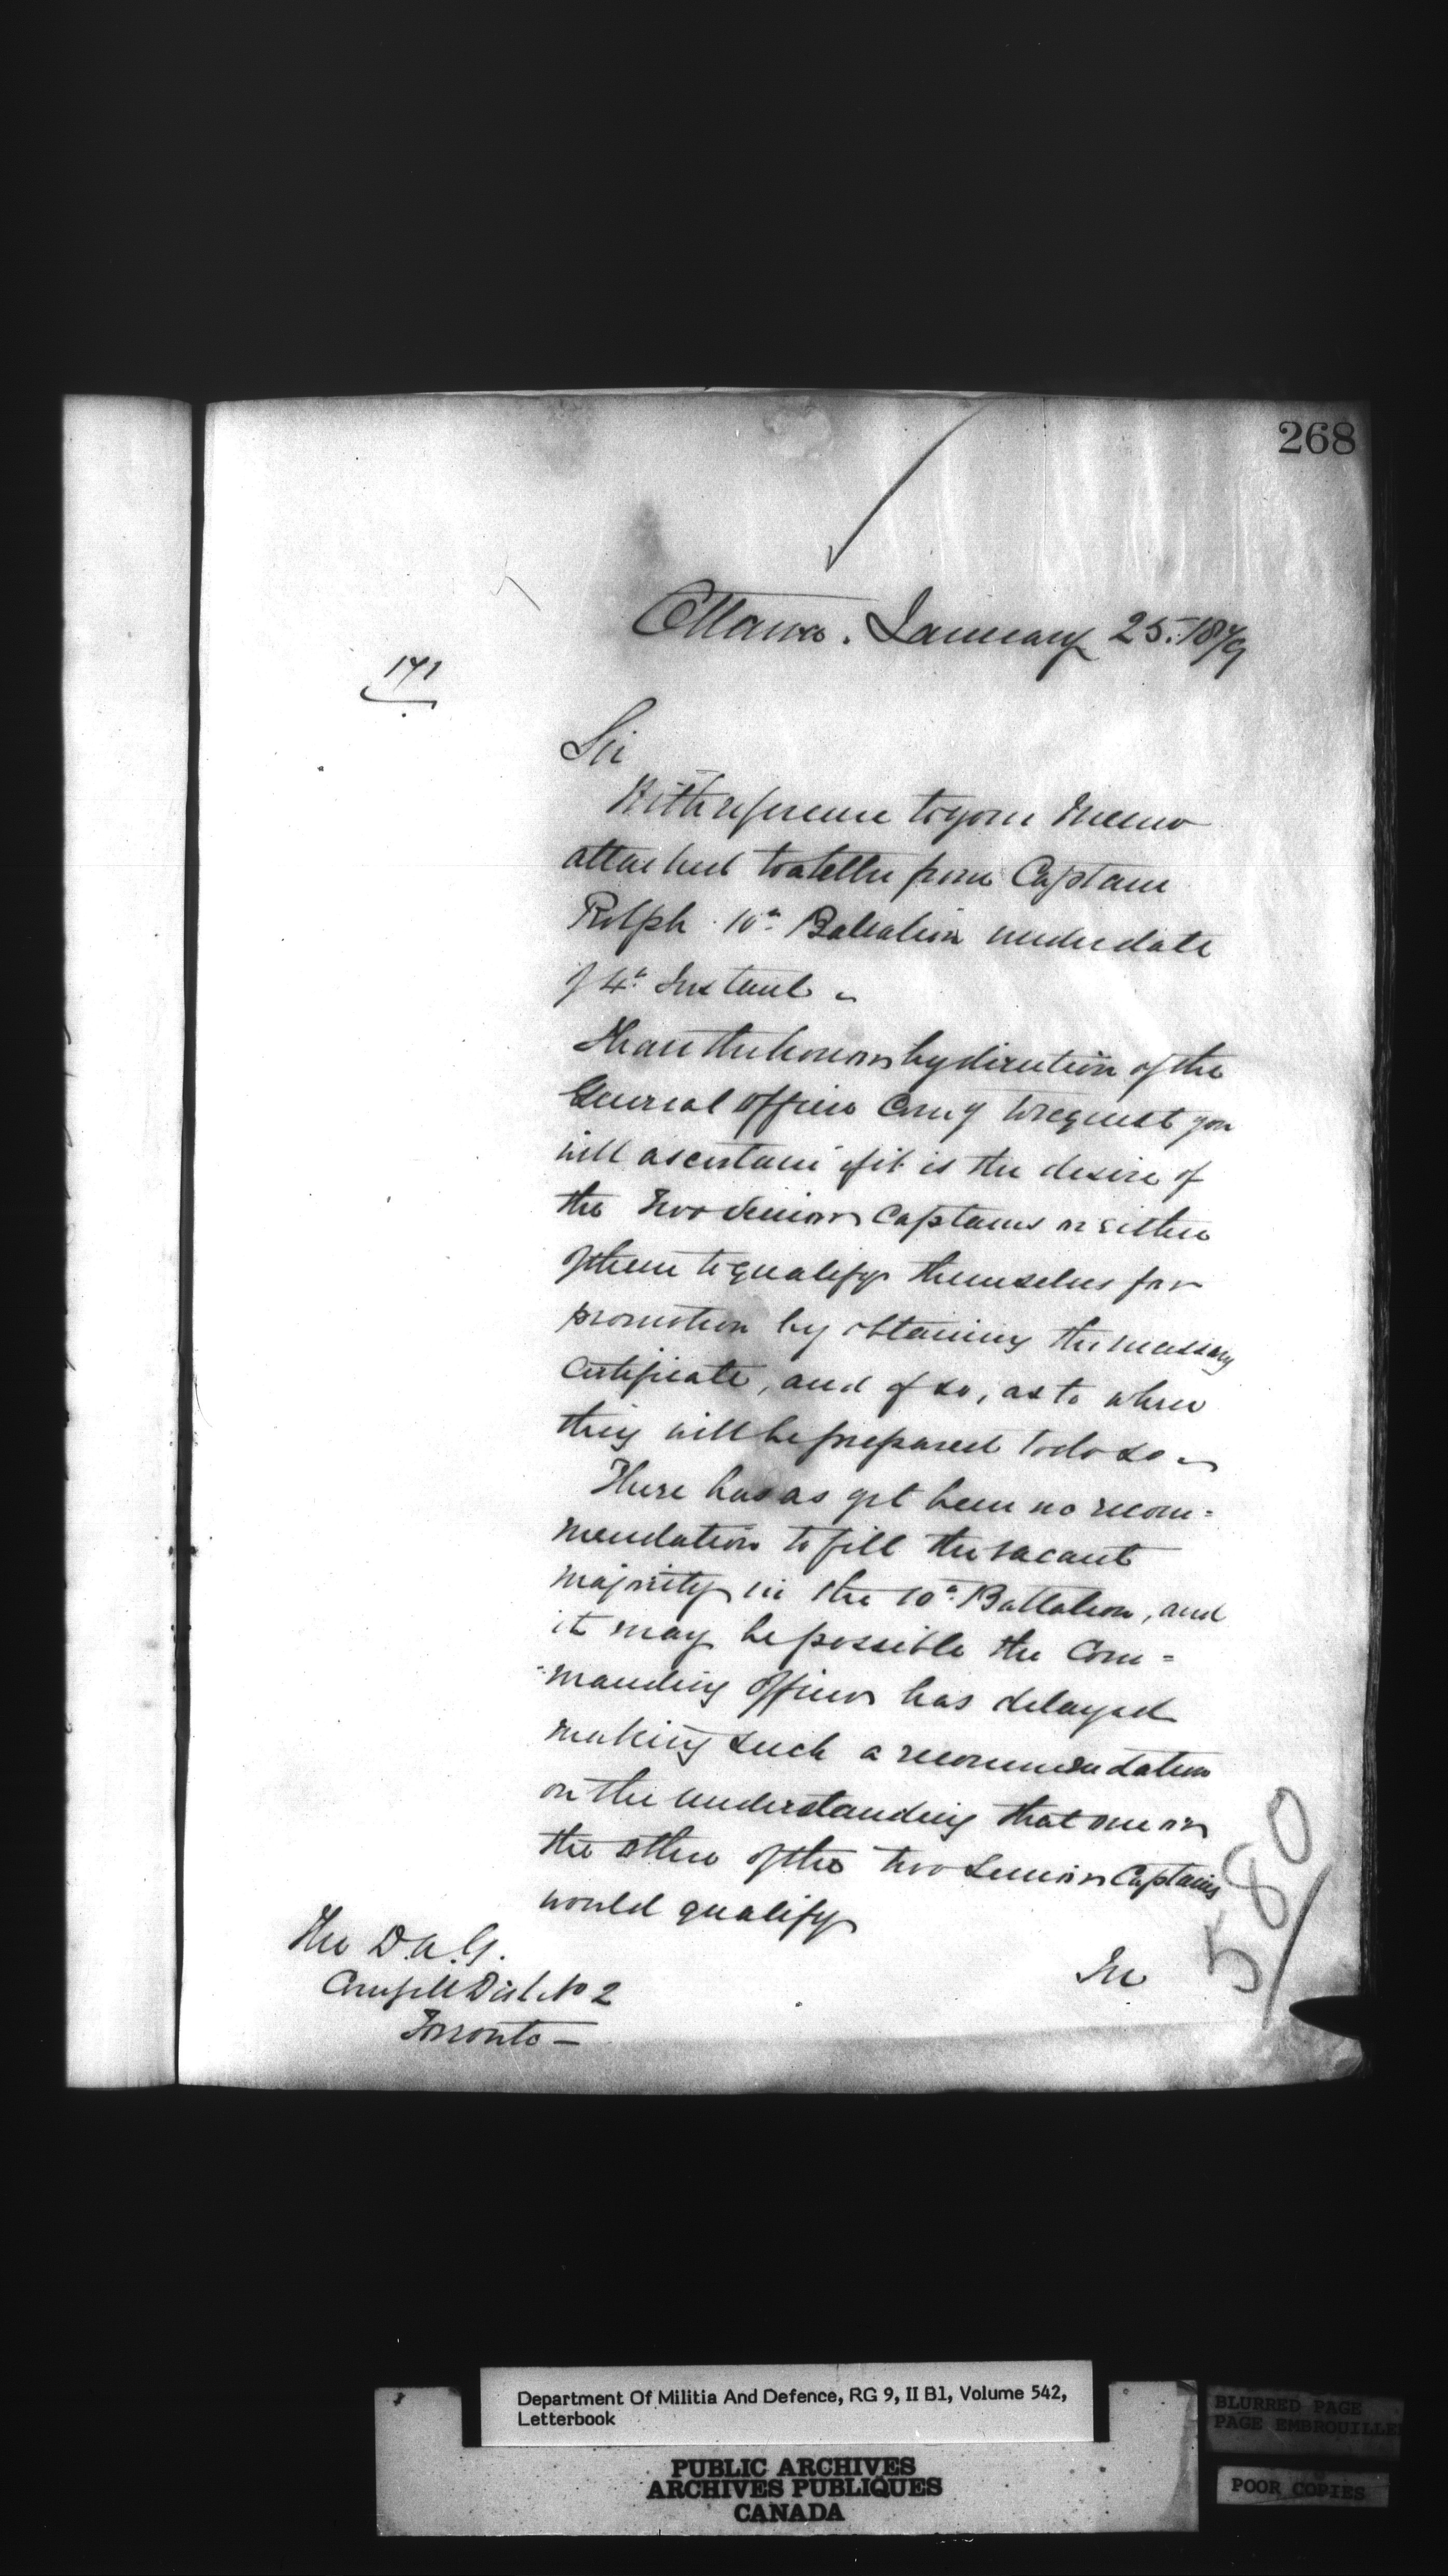 268
Ottawa. January 25. 1879
171
Sir
With reference to your Memo
attached to a letter from Captain
Rolph 10th Battalion under date
of 4th Instant
I have the honor by direction of the
General Officer Comg to request you
will ascertain if it is the desire of
the two Senior Captains or either
of them to qualify themselves for
promotion by obtaining the necessary
Certificate, and if so, as to when
they will be prepared to do so
There has as yet been no recom=
mendation to fill the vacant
majority in the 10th Battalion, and
it may be possible the Com=
=manding Officer has delayed
making such a recommendation
on the understanding that one or
the other of the two Senior Captains
would qualify
In
The D.A.G.
Comg Mil Dist No 2
Toronto —
580
Department Of Militia And Defence, RG 9, II B1, Volume 542,
Letterbook
PUBLIC ARCHIVES
ARCHIVES PUBLIQUES
CANADA
BLURRED PAGE
PAGE EMBROUILLE
POOR COPIES